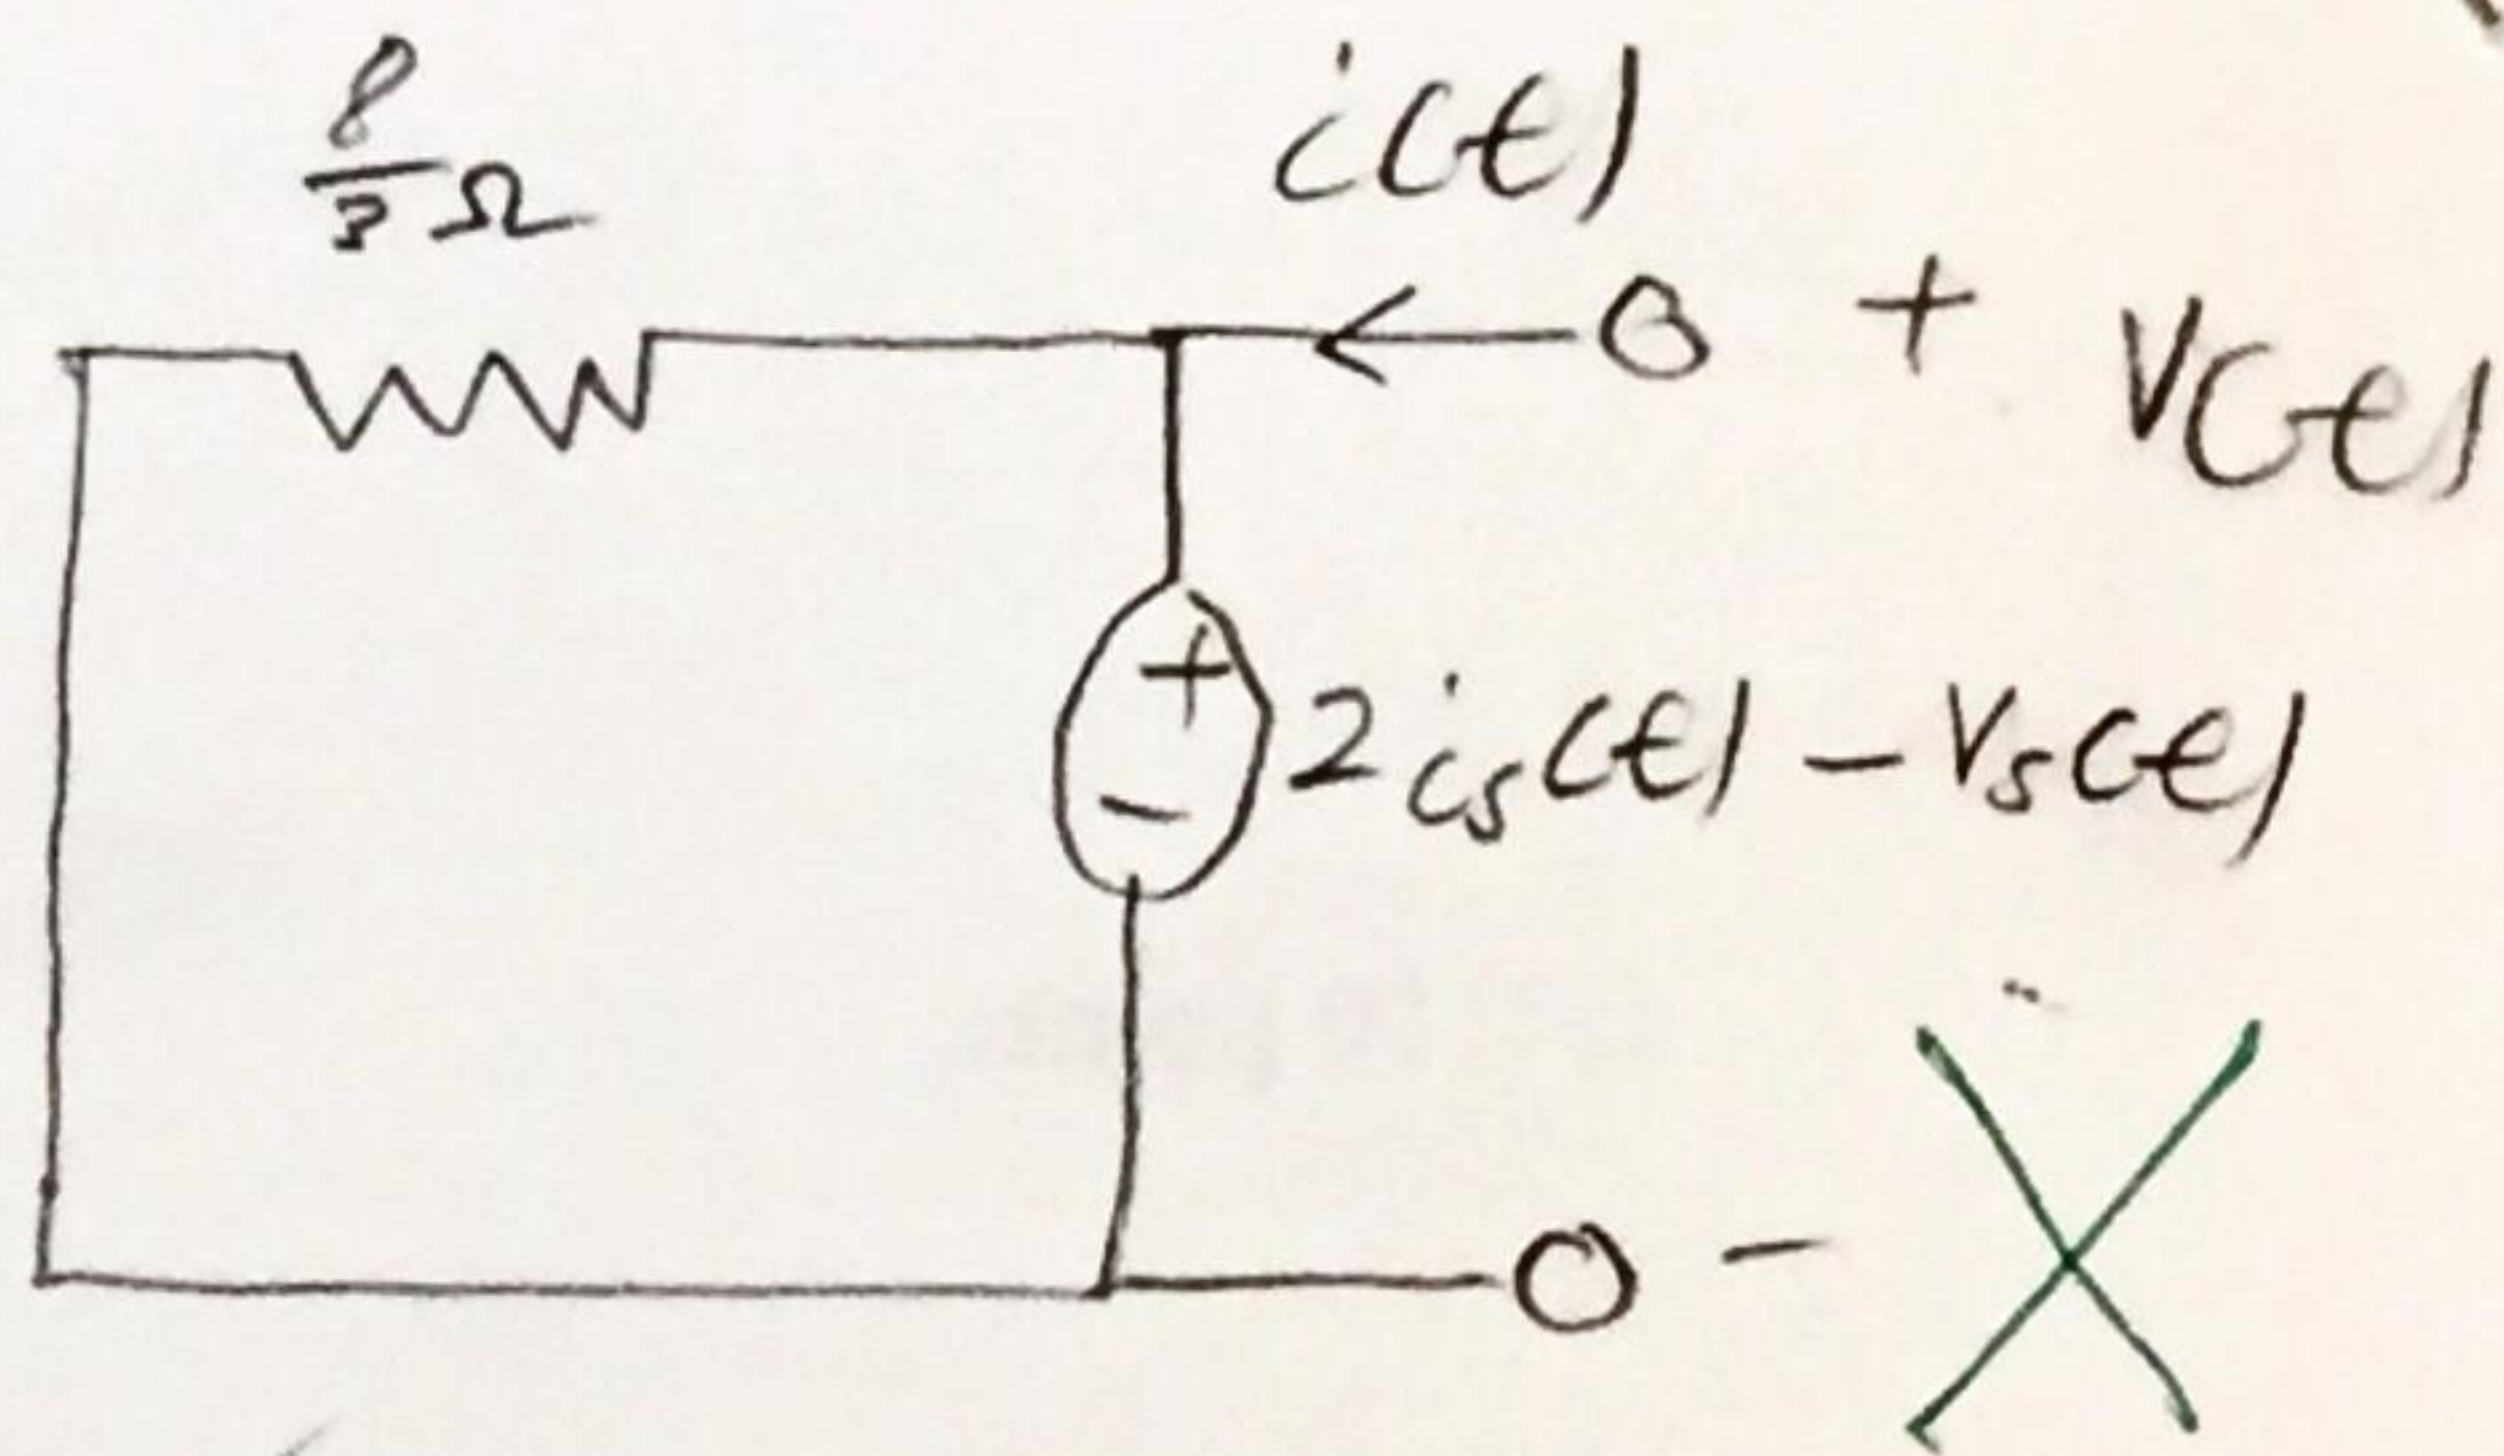 8/3 Ω
i(t)
+
v(t)
+
2is(t) - vs(t)
-
-